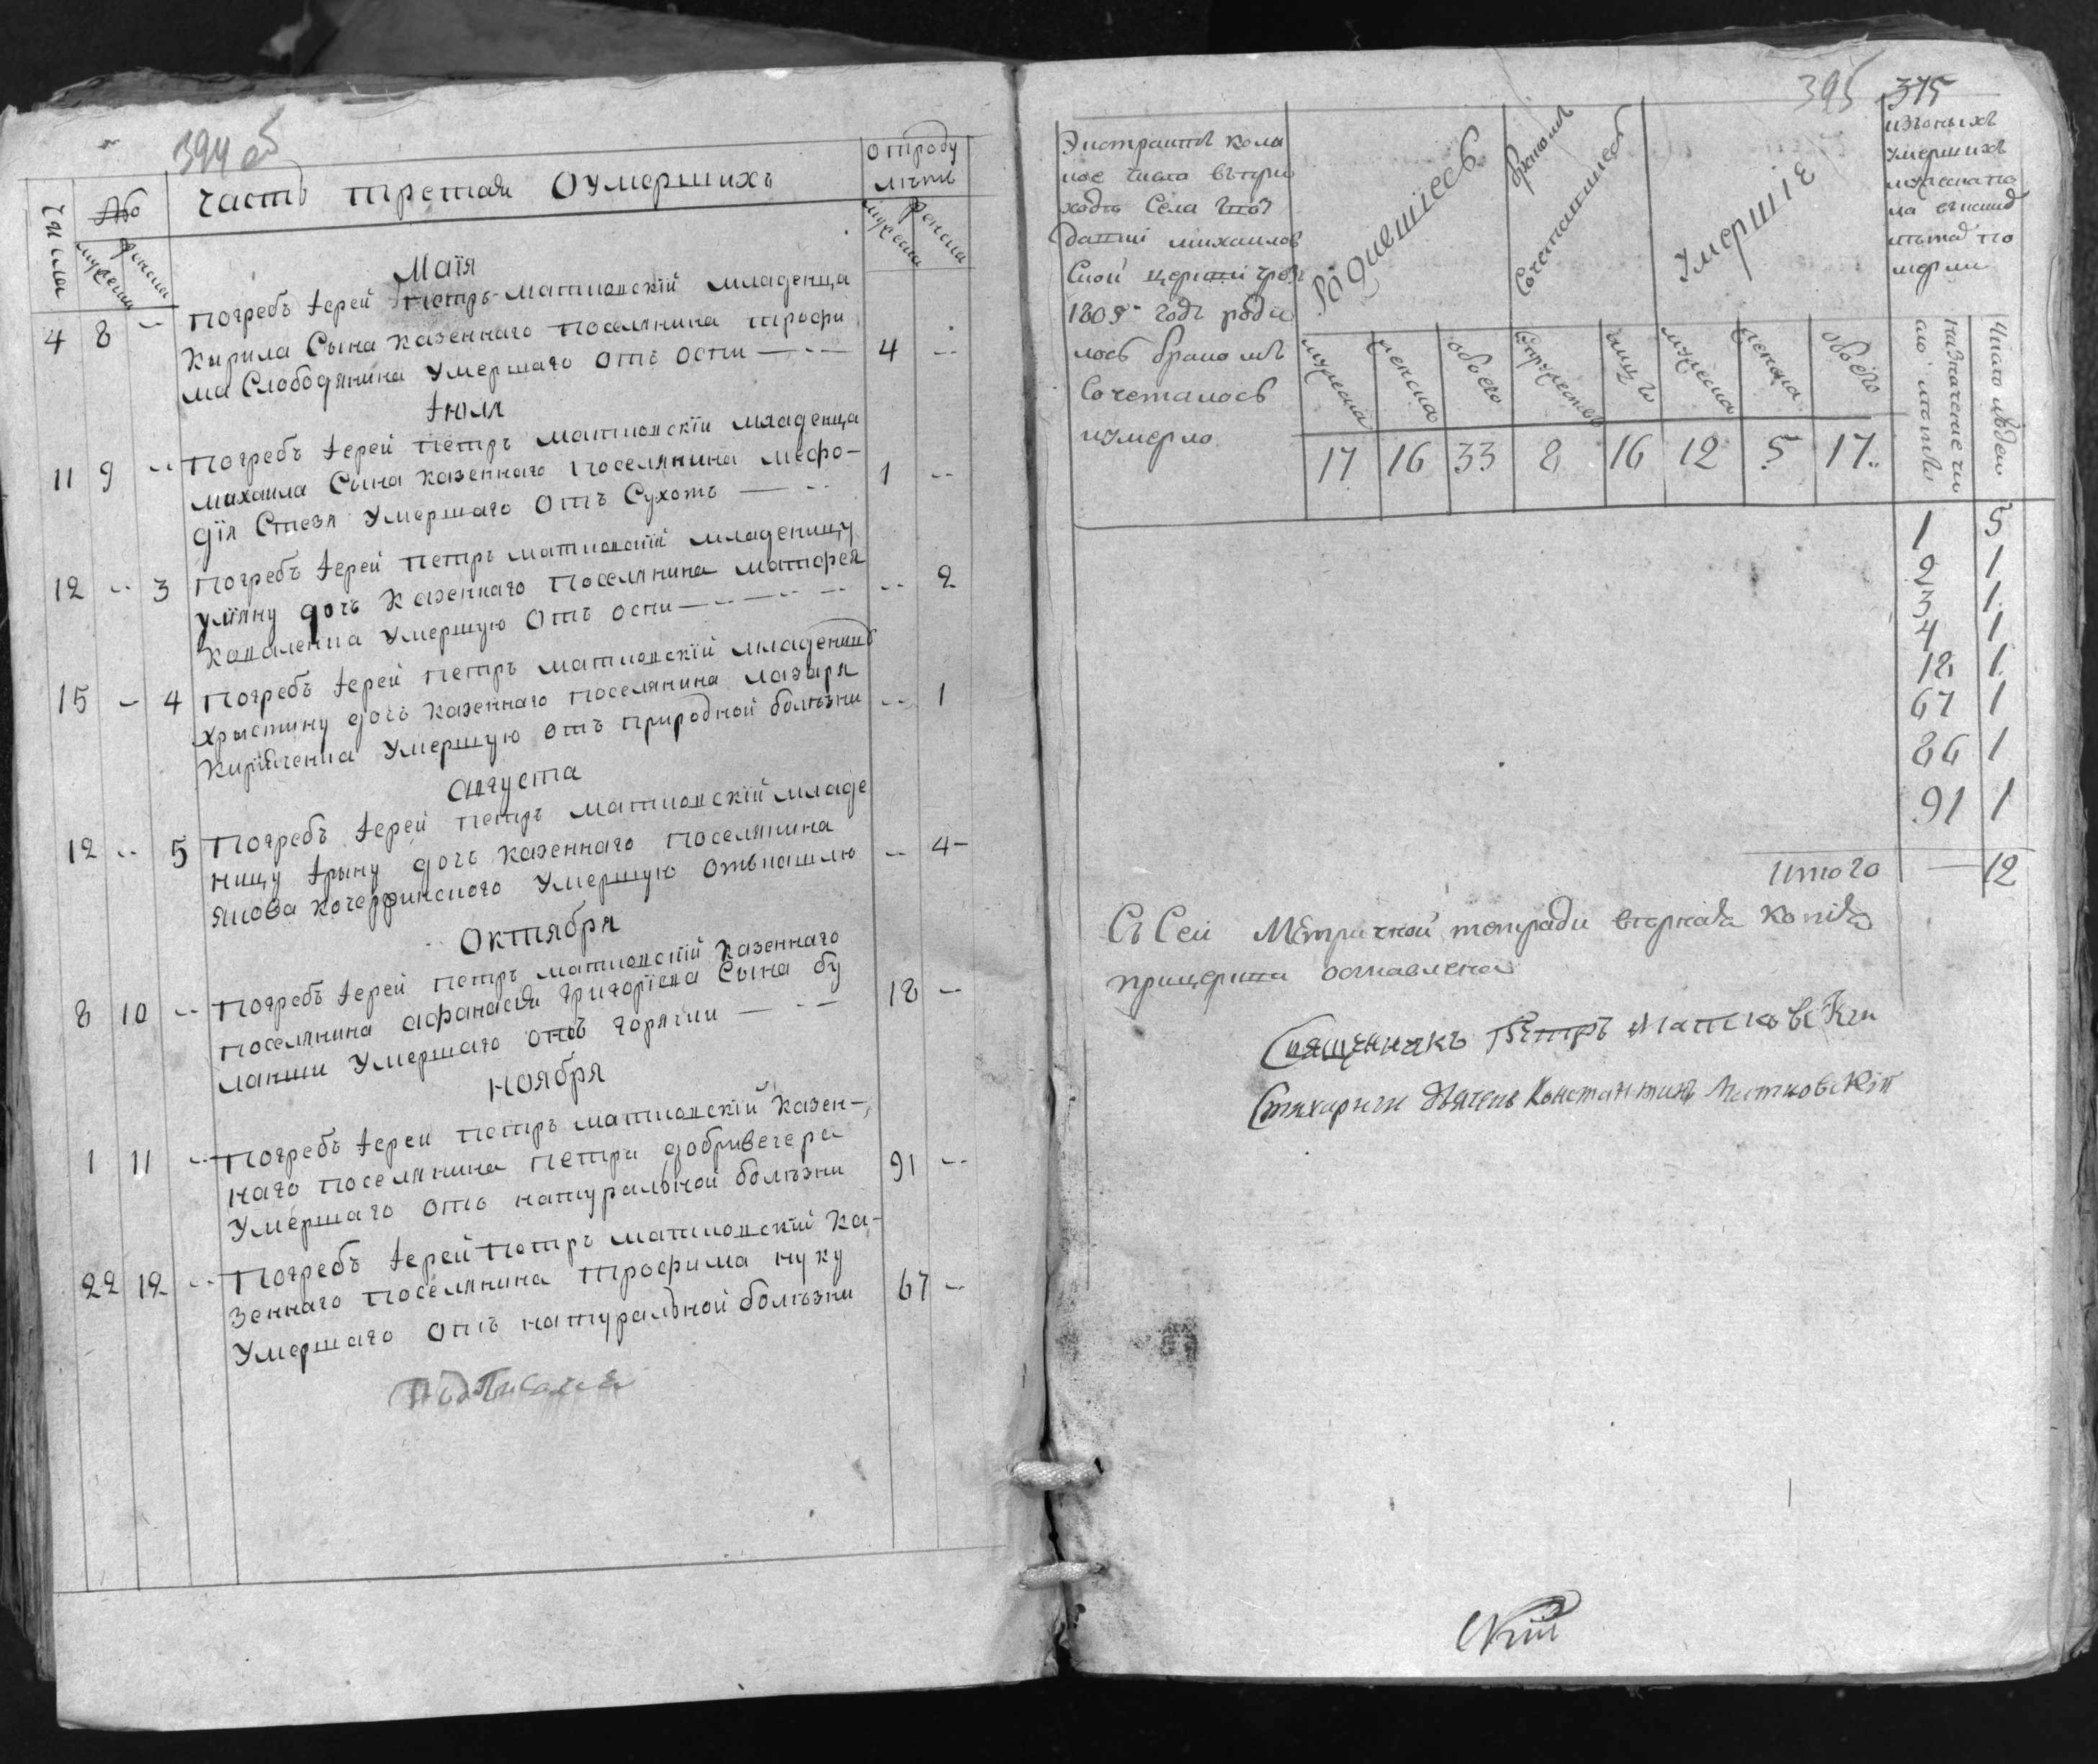 394 об
Числа
№
мужеска
женска
часть третая Оумершихъ
отроду
летъ
мужеска
женска
Маія
4 8 -- Погребъ Іерей Петръ Матковскій младенца
Кирила Сына казеннаго Поселянина трофи
ма Слободянина Умершаго Отъ оспи — 4 --
Іюля
11 9 -- Погребъ Іерей Петръ Матковскій младенца
михаила Сына казеннаго Поселянина мефо-
дія Стезя Умершаго Отъ Сухотъ — 1 --
12 -- 3 Погребъ Іерей Петръ матковскій младеницу
уліяну дочь казеннаго Поселянина матфея
Коваленка Умершую Отъ оспи — -- 2
15 -- 4 Погребъ Іерей Петръ матковскій младеницу
христину дочь казеннаго поселянина лазаря
Кириченка Умершую отъ природной болѣзни -- 1
Августа
12 -- 5 Погребъ Іерей Петръ матковскій младе
ницу Ірину дочь казеннаго Поселянина
Якова Кочерфинского Умершую отъкашлю -- 4 -
Октября
8 10 -- Погребъ Іерей Петръ матковскій казеннаго
поселянина афанасія григоріева Сына бу
лакши Умершаго отъ горячки — 18 --
Ноября
1 11 -- Погребъ Іерей Петръ матковскій казен-
наго поселянина Петра добривечера
Умершаго отъ натуральной болѣзни 91 --
22 12 -- Погребъ Іерей Петръ матковскій ка-
зеннаго поселянина трофима нуку
Умершаго отъ натуральной болѣзни 67 --
395 375
Экстрактъ коли
кое число въпри
ходѣ Села
михаилов
Ской церкви чрезъ
1805 годъ роди
лось бракомъ
Сочеталось
иумерло
Родившіесь
бракомъ
Сочетавшиесь
Умершіе
изъоныхъ
умершихъ
мужеска по
ла
по
мерли
мужеска
женска
обоего
Супружествъ
лицъ
мужеска
женска
обоего
Число людей
17 16 33 8 16 12 5 17
1 5
2 1
3 1
4 1
18 1
67 1
86 1
91 1
Итого — 12
Съ Сей Метричной тетради вторная копія
прицеркви оставлена
Священникъ Петръ Матковскій
Стихарный Дьячекъ Константинъ Матковскій
скій